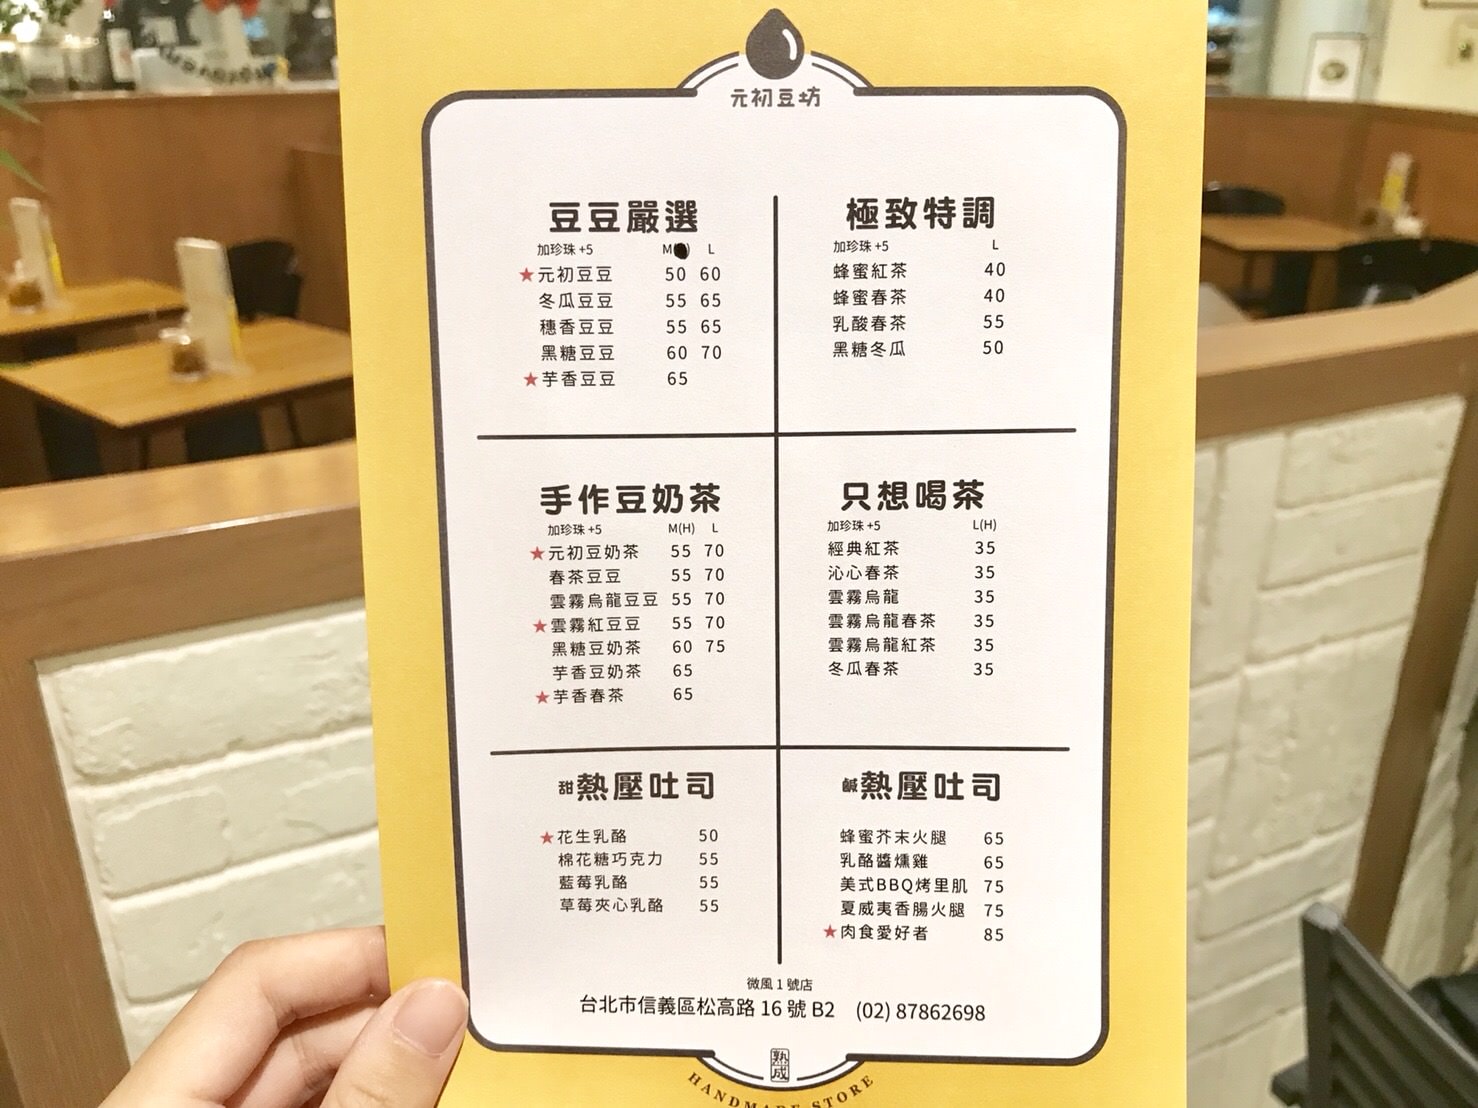 元初豆坊
豆豆嚴選
加珍珠 +5 M L
★元初豆豆 50 60
冬瓜豆豆 55 65
穗香豆豆 55 65
黑糖豆豆 60 70
★芋香豆豆 65
極致特調
加珍珠 +5 L
蜂蜜紅茶 40
蜂蜜春茶 40
乳酸春茶 55
黑糖冬瓜 50
手作豆奶茶
加珍珠 +5 M(H) L
★元初豆奶茶 55 70
春茶豆豆 55 70
雲霧烏龍豆豆 55 70
★雲霧紅豆豆 55 70
黑糖豆奶茶 60 75
芋香豆奶茶 65
★芋香春茶 65
只想喝茶
加珍珠 +5 L(H)
經典紅茶 35
沁心春茶 35
雲霧烏龍 35
雲霧烏龍春茶 35
雲霧烏龍紅茶 35
冬瓜春茶 35
甜熱壓吐司
★花生乳酪 50
棉花糖巧克力 55
藍莓乳酪 55
草莓夾心乳酪 55
鹹熱壓吐司
蜂蜜芥末火腿 65
乳酪醬燻雞 65
美式BBQ烤里肌 75
夏威夷香腸火腿 75
★肉食愛好者 85
微風 1 號店
台北市信義區松高路 16 號 B2 (02) 87862698
熟成
HANDMADE STORE